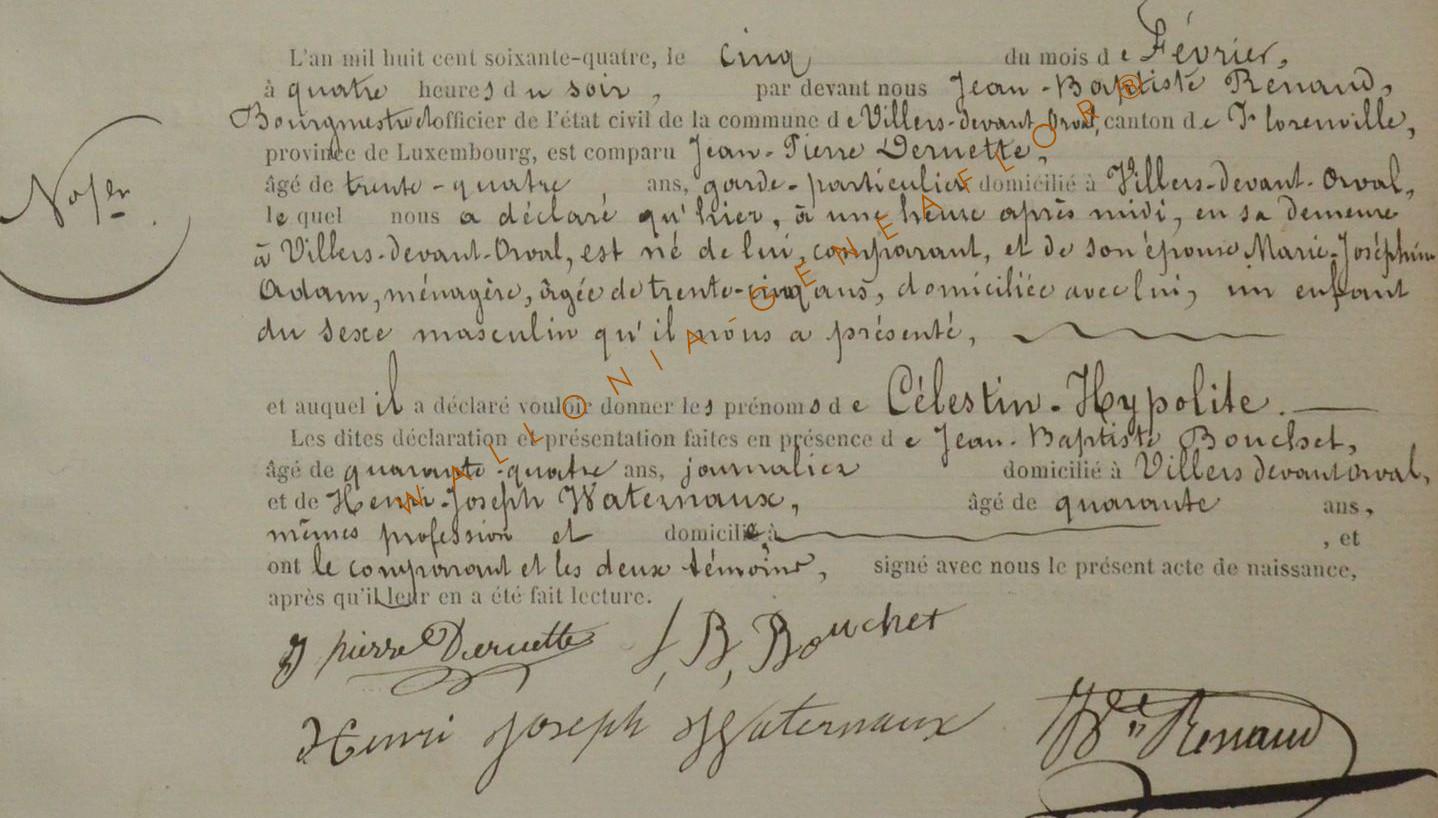 L'an mil huit cent soixante-quatre, le cinq du mois de Février,
à quatre heures du soir, par devant nous Jean-Baptiste Renaud,
Bourgmestre et officier de l'état civil de la commune de Villers-devant-Orval, canton de Florenville,
province de Luxembourg, est comparu Jean-Pierre Deruette,
âgé de trente-quatre, ans, garde-particulier domicilié à Villers-devant-Orval,
lequel nous a déclaré qu'hier, à une heure après midi, en sa demeure
à Villers-devant-Orval, est né de lui, comparant, et de son épouse Marie-Joséphine
Adam, ménagère, âgée de trente-cinq ans, domiciliée avec lui, un enfant
du sexe masculin qu'il nous a présenté,
et auquel il a déclaré vouloir donner les prénoms de Célestin-Hypolite.
Les dites déclaration et présentation faites en présence de Jean-Baptiste Bouchet,
âgé de quarante-quatre ans, journalier domicilié à Villers devant orval,
et de Henri-Joseph Waternaux, âgé de quarante ans,
mêmes profession et domicile, , et
ont le comparant et les deux témoins, signé avec nous le présent acte de naissance,
après qu'il leur en a été fait lecture.
J pierre Deruette J, B, Bouchet
Henri Joseph Waternaux Renaud
WALLONIA-GENEAFLOR®